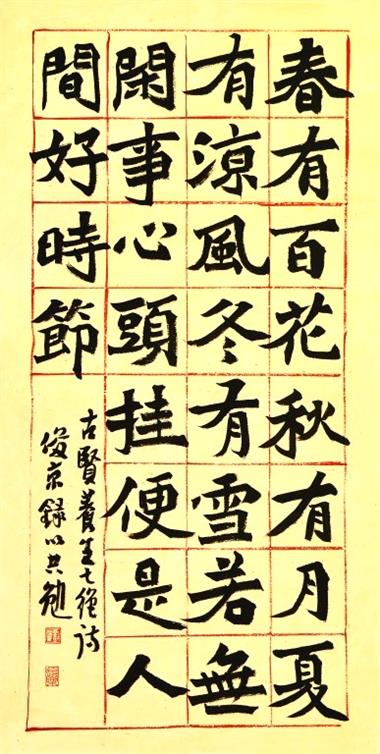 春有百花秋有月夏
有涼風冬有雪若無
閑事心頭挂便是人
間好時節
古賢養生七絕詩
俊京録以共勉